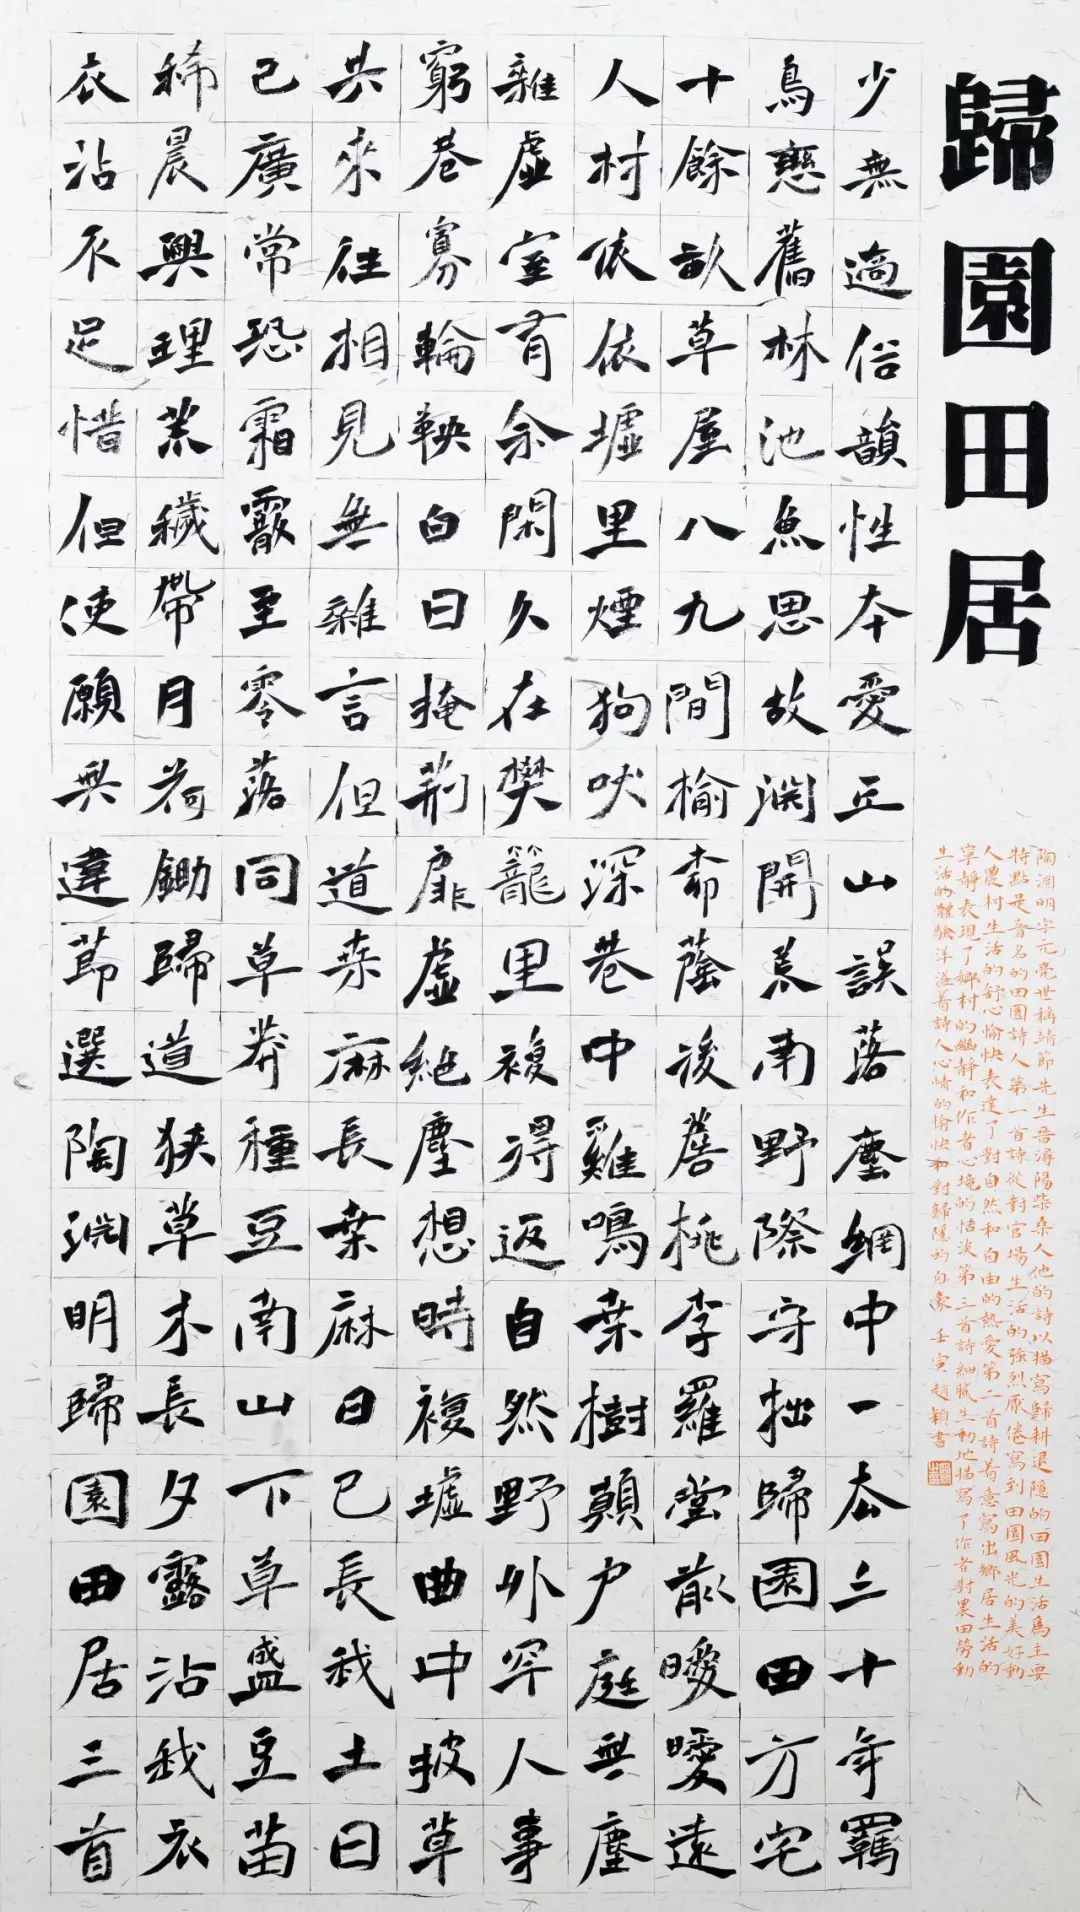 歸園田居
少無適俗韻性本愛丘山誤落塵網中一去三十年羈
鳥戀舊林池魚思故淵開荒南野際守拙歸園田方宅
十餘畝草屋八九間榆柳蔭後簷桃李羅堂前曖曖遠
人村依依墟里煙狗吠深巷中雞鳴桑樹顛户庭無塵
雜虛室有余閑久在樊籠里複得返自然野外罕人事
窮巷寡輪鞅白日掩荊扉虛絕塵想時複墟曲中披草
共來往相見無雜言但道桑麻長桑麻日已長我土日
已廣常恐霜霰至零落同草莽種豆南山下草盛豆苗
稀晨興理荒穢帶月荷鋤歸道狹草木長夕露沾我衣
衣沾不足惜但使願無違節選陶淵明歸園田居三首
陶淵明字元亮世稱靖節先生晉潯陽柴桑人他的詩以描寫歸耕退隱的田園生活為主要
特點是著名的田園詩人第一首詩從對官場生活的強烈厭倦寫到田園風光的美好動
人農村生活的舒心愉快表達了對自然和自由的熱愛第二首詩着意寫出鄉居生活的
寧靜表現了鄉村的幽靜和作者心境的恬淡第三首詩細膩生動地描寫了作者對農田勞動
生活的體驗洋溢着詩人心情的愉快和對歸隱的自豪 壬寅趙穎書